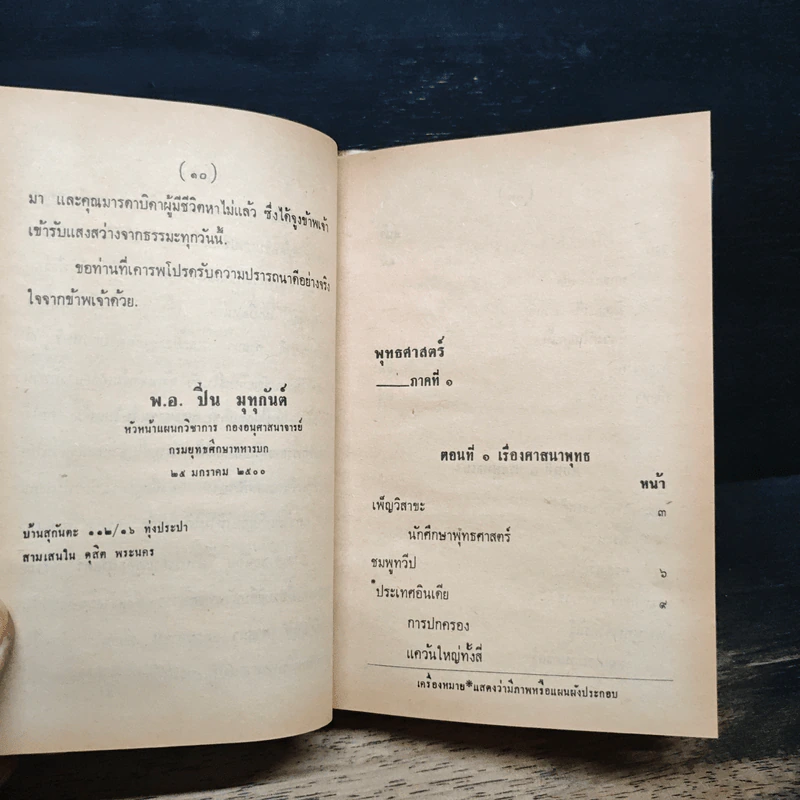 (๑๐)
มา และคุณมารดาบิดาผู้มีชีวิตหาไม่แล้ว ซึ่งได้จูงข้าพเจ้า
เข้ารับแสงสว่างจากธรรมะทุกวันนี้.
ขอท่านที่เคารพโปรดรับความปรารถนาดีอย่างจริง
ใจจากข้าพเจ้าด้วย.
พ.อ. ปิ่น มุทุกันต์
หัวหน้าแผนกวิชาการ กองอนุศาสนาจารย์
กรมยุทธศึกษาทหารบก
๒๕ มกราคม ๒๕๐๐
บ้านสุกันตะ ๑๑๒/๑๖ ทุ่งประปา
สามเสนใน ดุสิต พระนคร
พุทธศาสตร์
ภาคที่ ๑
ตอนที่ ๑ เรื่องศาสนาพุทธ
หน้า
เพ็ญวิสาขะ ๓
นักศึกษาพุทธศาสตร์
ชมพูทวีป ๖
*ประเทศอินเดีย ๙
การปกครอง
แคว้นใหญ่ทั้งสี่
เครื่องหมาย*แสดงว่ามีภาพหรือแผนผังประกอบ